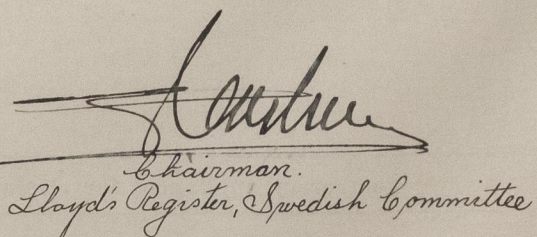 Chairman.
Lloyd's Register, Swedish Committee